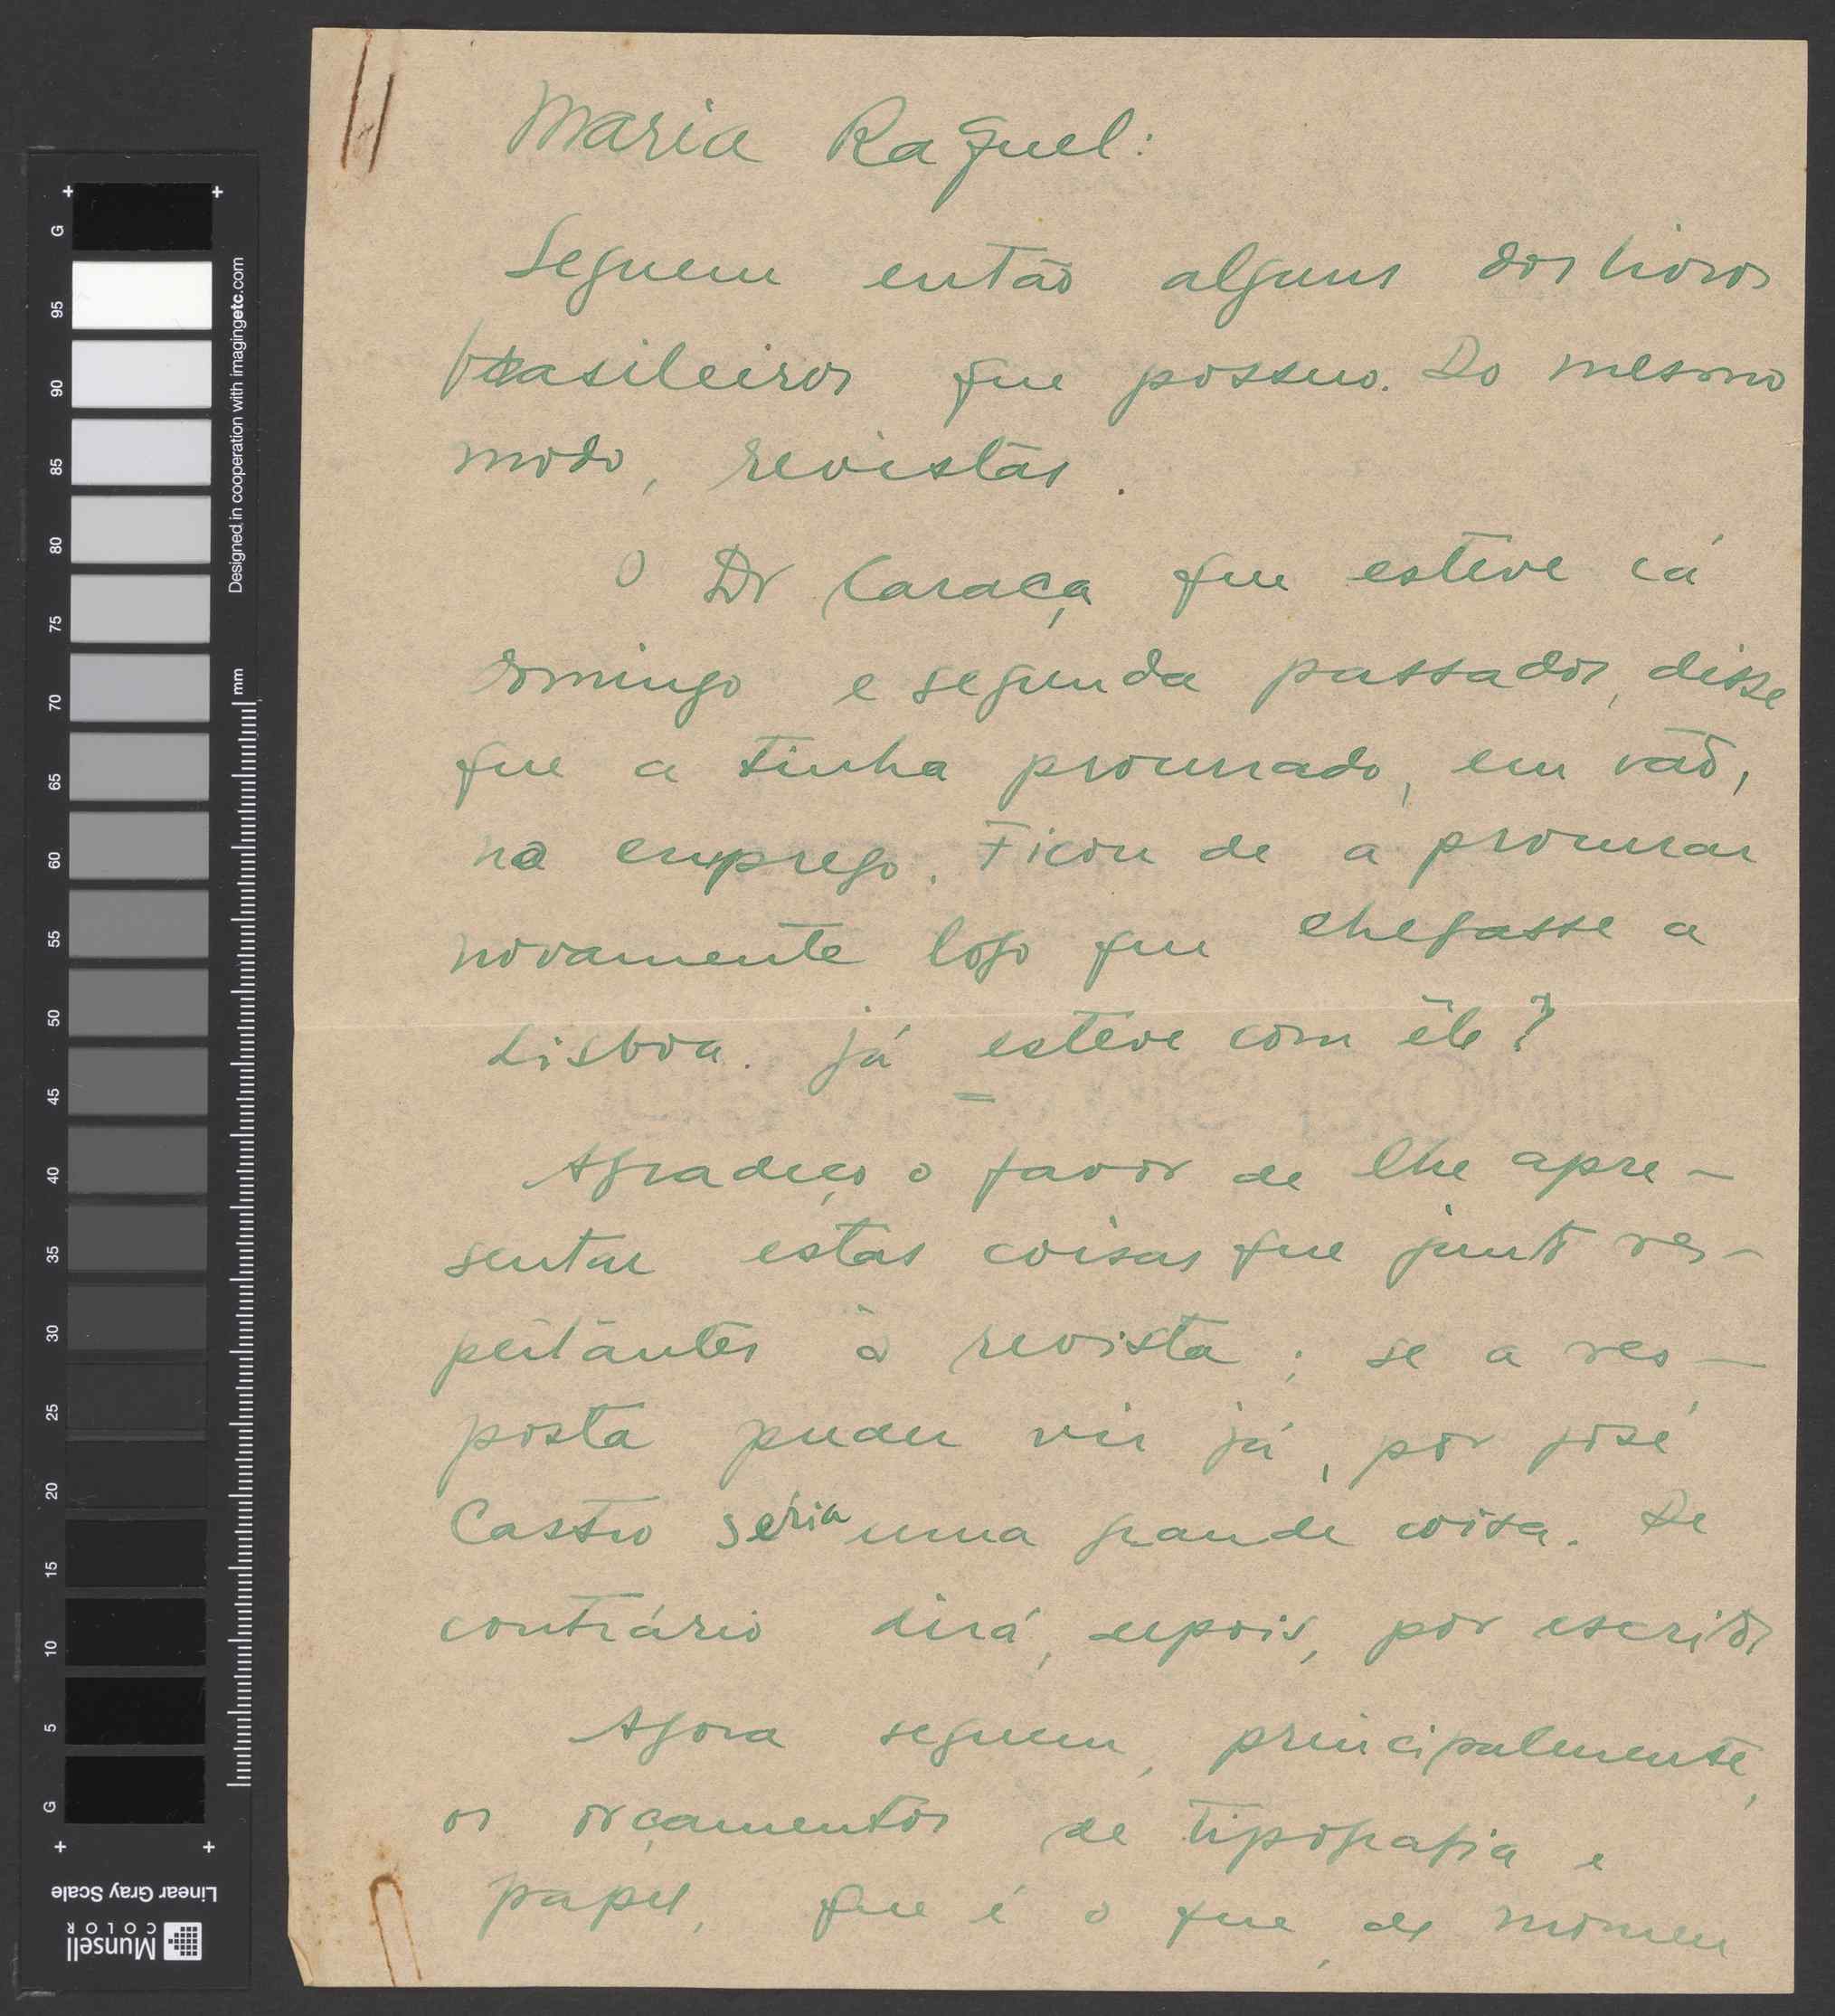 Maria Raquel:
Seguem então alguns dos livros
brasileiros que possuo. Do mesmo
modo, revistas.
O Dr Caraça que esteve cá
domingo e segunda passados, disse
que a tinha procurado, em vão,
no emprego. Ficou de a procurar
novamente logo que chegasse a
Lisboa. já esteve com êle?
Agradeço o favor de lhe apre-
sentar estas coisas que junto res-
peitantes à revista; se a res-
posta puder vir já, por josé
Castro seria uma grande coisa. De
contrário dirá, depois, por escrito
Agora seguem, principalmente,
os orçamentos de tipografia e
papel, que é o que, de momen
G
95
90
85
80
75
70
65
60
55
50
45
40
35
30
25
20
15
10
5
G
mm
Designed in cooperation with imagingetc.com
Linear Gray Scale
Munsell
COLOR